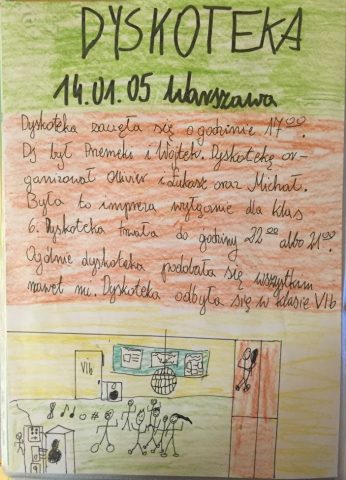 DYSKOTEKA
14.01.05 Warszawa
Dyskoteka zaczęła się o godzinie 17⁰⁰.
Dj był Przemek i Wojtek. Dyskotekę or-
ganizował Oliwier i Łukasz oraz Michał.
Była to impreza wyłącznie dla klas
6. Dyskoteka trwała do godziny 22⁰⁰ albo 21⁰⁰.
Ogólnie dyskoteka podobała się wszystkim
nawet mi. Dyskoteka odbyła się w klasie VIb
VIb